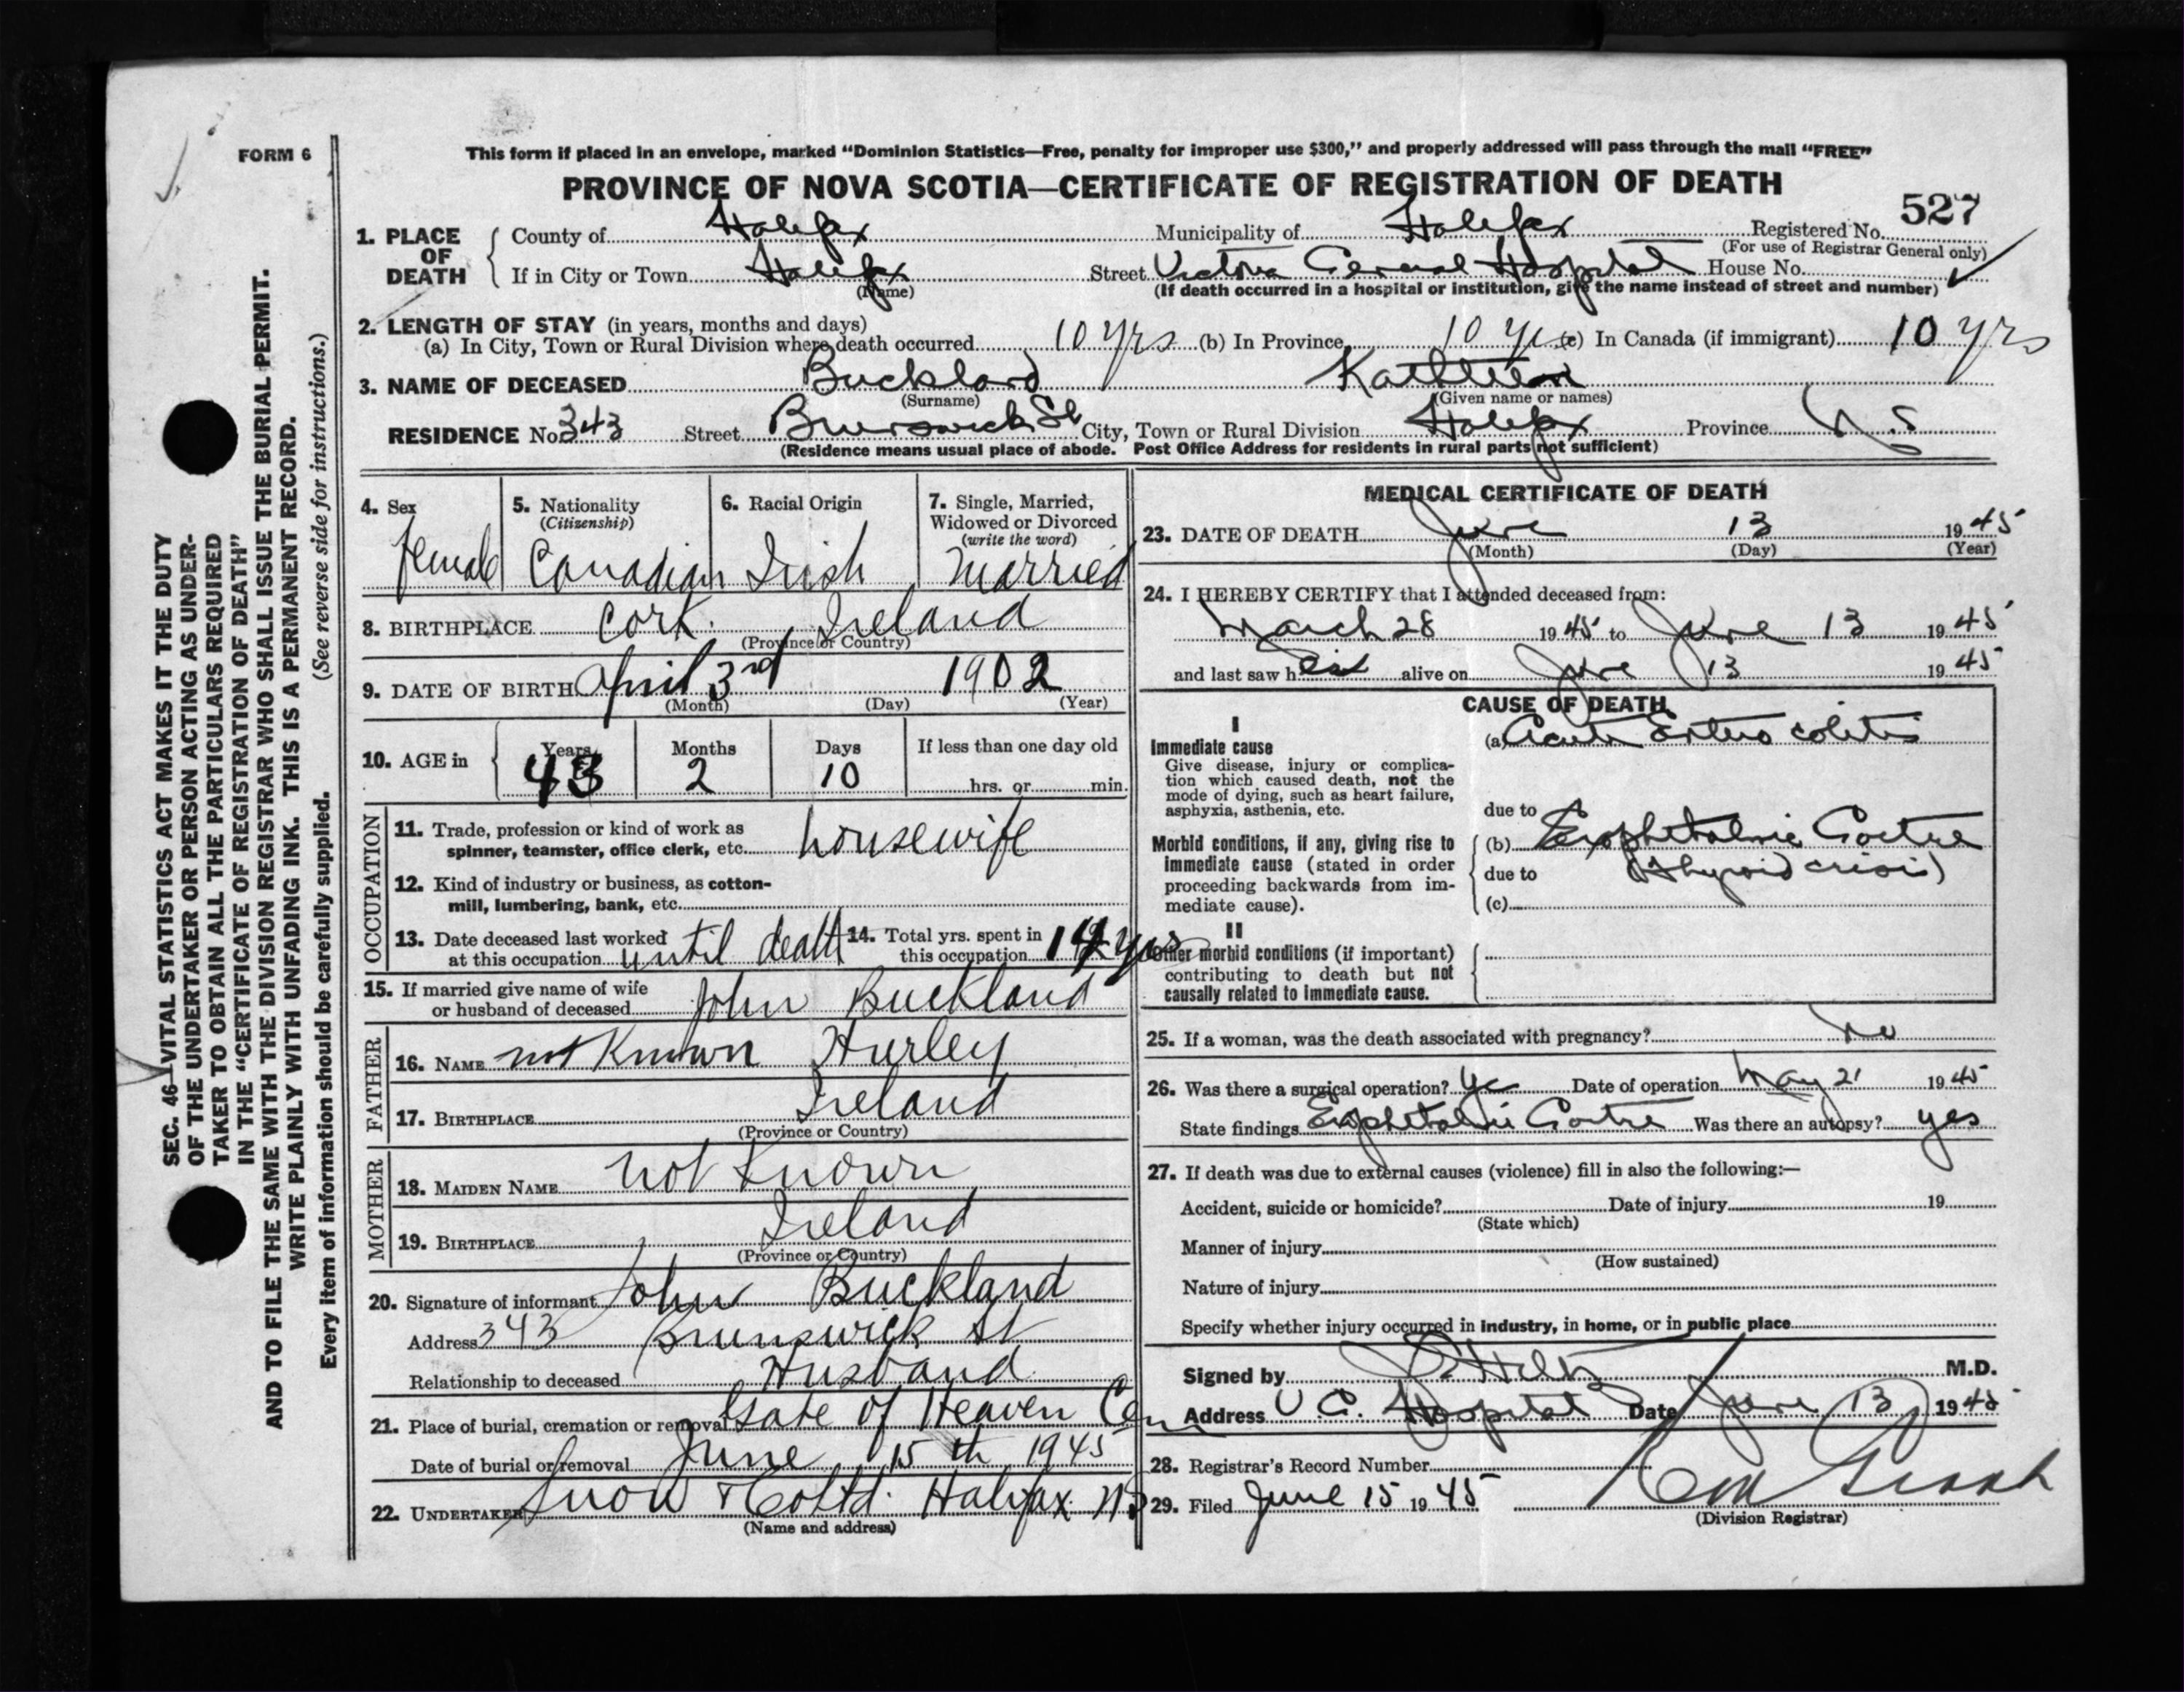 FORM 6
This form if placed in an envelope, marked "Dominion Statistics—Free, penalty for improper use $300," and properly addressed will pass through the mail "FREE"
PROVINCE OF NOVA SCOTIA—CERTIFICATE OF REGISTRATION OF DEATH
527
1. PLACE OF DEATH County of Halifax Municipality of Halifax Registered No.
(For use of Registrar General only)
If in City or Town Halifax Street Victoria General Hospital House No.
(Name) (If death occurred in a hospital or institution, give the name instead of street and number)
2. LENGTH OF STAY (in years, months and days)
(a) In City, Town or Rural Division where death occurred 10 yrs (b) In Province 10 yrs (c) In Canada (if immigrant) 10 yrs
3. NAME OF DECEASED Buckland Kathleen
(Surname) (Given name or names)
RESIDENCE No. 343 Street Brunswick St City, Town or Rural Division Halifax Province N.S
(Residence means usual place of abode. Post Office Address for residents in rural parts not sufficient)
4. Sex 5. Nationality (Citizenship) 6. Racial Origin 7. Single, Married, Widowed or Divorced (write the word)
female Canadian Irish Married
8. BIRTHPLACE Cork. Ireland
(Province or Country)
9. DATE OF BIRTH April 3rd 1902
(Month) (Day) (Year)
10. AGE in Years Months Days If less than one day old
43 2 10 hrs. or min.
OCCUPATION
11. Trade, profession or kind of work as
spinner, teamster, office clerk, etc. housewife
12. Kind of industry or business, as cotton-
mill, lumbering, bank, etc.
13. Date deceased last worked
at this occupation until death
14. Total yrs. spent in
this occupation 14 yrs
15. If married give name of wife
or husband of deceased John Buckland
FATHER
16. NAME not Known Hurley
17. BIRTHPLACE Ireland
(Province or Country)
MOTHER
18. MAIDEN NAME not Known
19. BIRTHPLACE Ireland
(Province or Country)
20. Signature of informant John Buckland
Address 343 Brunswick St
Relationship to deceased Husband
21. Place of burial, cremation or removal Gate of Heaven Cem
Date of burial or removal June 15th 1945
22. UNDERTAKER Snow & Co Ltd. Halifax. NS
(Name and address)
MEDICAL CERTIFICATE OF DEATH
23. DATE OF DEATH June 13 1945
(Month) (Day) (Year)
24. I HEREBY CERTIFY that I attended deceased from:
March 28 1945 to June 13 1945
and last saw her alive on June 13 1945
CAUSE OF DEATH
I
Immediate cause
Give disease, injury or complica-
tion which caused death, not the
mode of dying, such as heart failure,
asphyxia, asthenia, etc.
(a) Acute Entero colitis
due to
Morbid conditions, if any, giving rise to
immediate cause (stated in order
proceeding backwards from im-
mediate cause).
(b) Exophtalmic Goitre
due to (Thyroid crisis)
(c)
II
Other morbid conditions (if important)
contributing to death but not
causally related to immediate cause.
25. If a woman, was the death associated with pregnancy? No
26. Was there a surgical operation? Yes Date of operation May 21 1945
State findings Exophtalmic Goitre Was there an autopsy? yes
27. If death was due to external causes (violence) fill in also the following:—
Accident, suicide or homicide? Date of injury 19
(State which)
Manner of injury
(How sustained)
Nature of injury
Specify whether injury occurred in industry, in home, or in public place
Signed by M.D.
Address V. G. Hospital Date June 13 1945
28. Registrar's Record Number
29. Filed June 15 1945
(Division Registrar)
SEC. 46—VITAL STATISTICS ACT MAKES IT THE DUTY
OF THE UNDERTAKER OR PERSON ACTING AS UNDER-
TAKER TO OBTAIN ALL THE PARTICULARS REQUIRED
IN THE "CERTIFICATE OF REGISTRATION OF DEATH"
AND TO FILE THE SAME WITH THE DIVISION REGISTRAR WHO SHALL ISSUE THE BURIAL PERMIT.
WRITE PLAINLY WITH UNFADING INK. THIS IS A PERMANENT RECORD.
Every item of information should be carefully supplied. (See reverse side for instructions.)